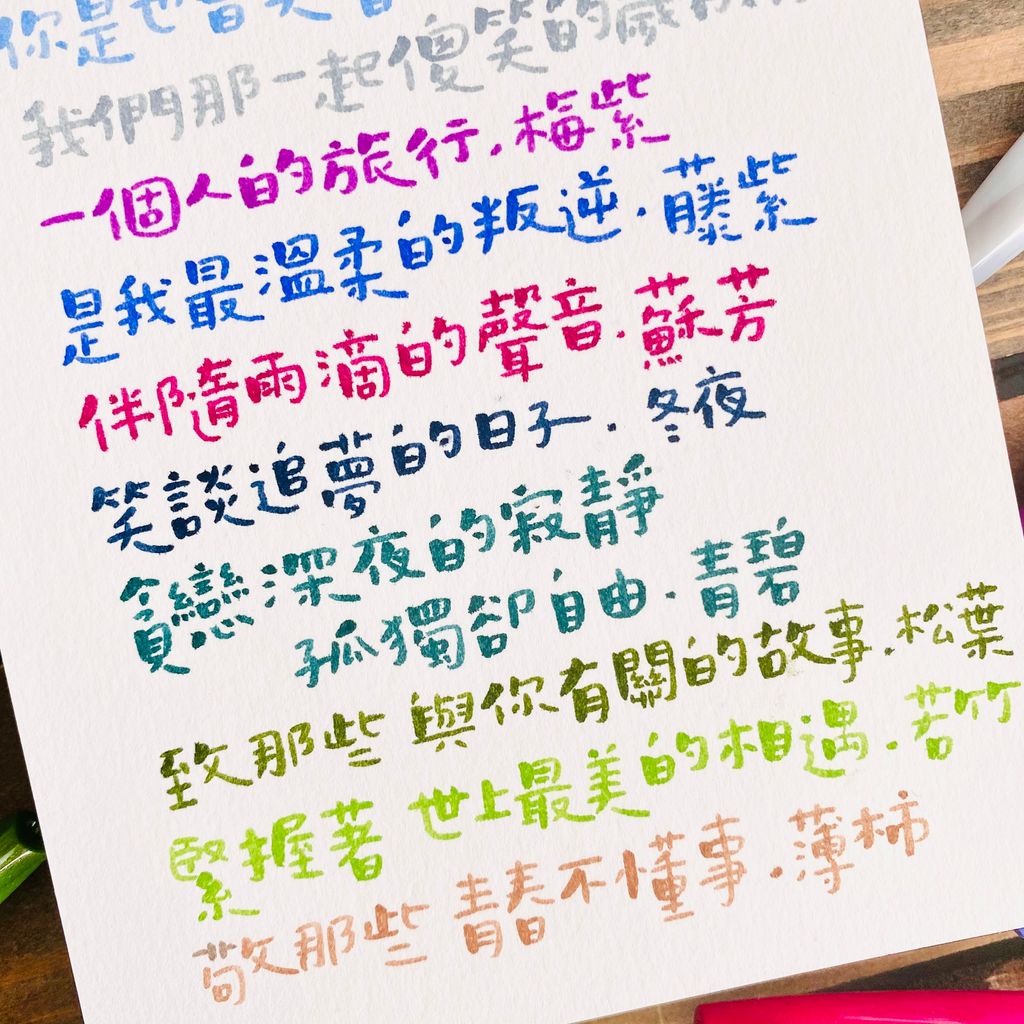 你是也
我們那一起傻笑的歲
一個人的旅行.梅紫
是我最溫柔的叛逆.藤紫
伴隨雨滴的聲音.蘇芳
笑談追夢的日子.冬夜
貪戀深夜的寂靜
孤獨卻自由.青碧
致那些 與你有關的故事.松葉
緊握著 世上最美的相遇.若竹
敬那些 青春不懂事.薄柿